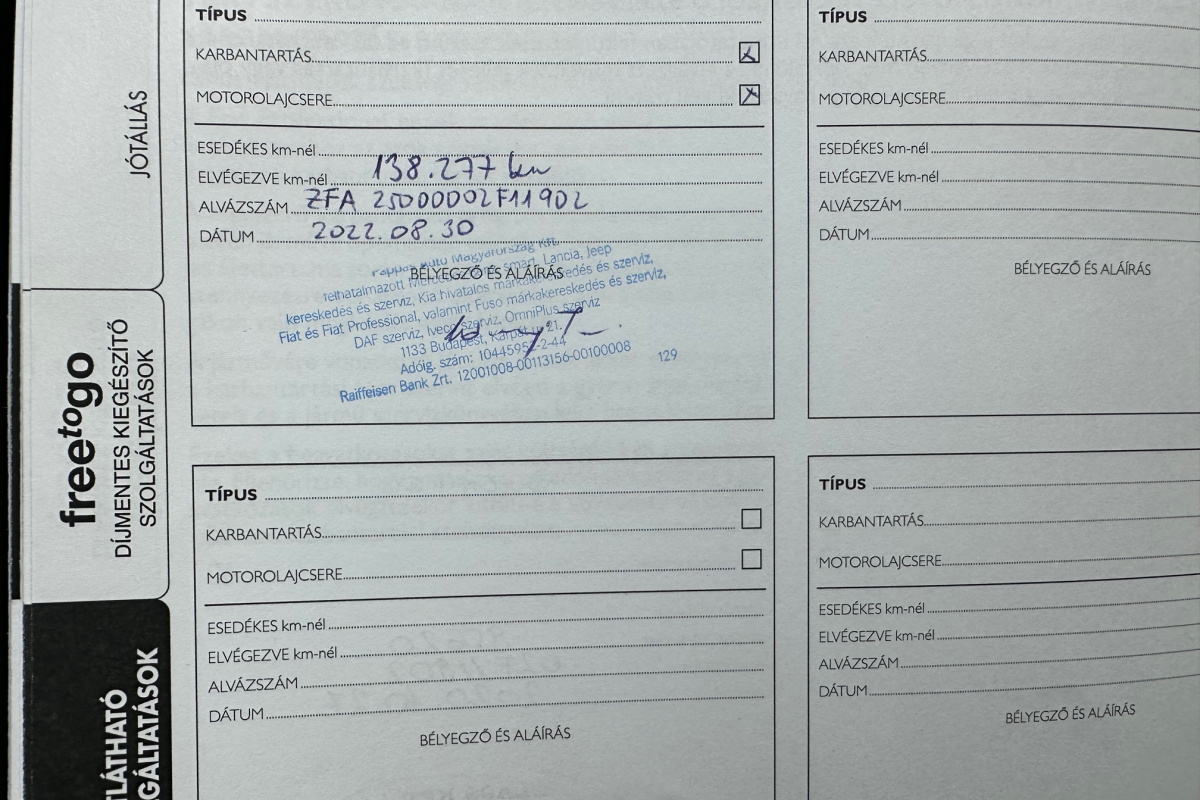 JÓTÁLLÁS
freetogo
DÍJMENTES KIEGÉSZÍTŐ
SZOLGÁLTATÁSOK
TÍPUS
KARBANTARTÁS
MOTOROLAJCSERE
ESEDÉKES km-nél
ELVÉGEZVE km-nél 138.277 km
ALVÁZSZÁM ZFA 25000D02F11902
DÁTUM 2022.08.30
BÉLYEGZŐ ÉS ALÁÍRÁS
Pappas Autó Magyarország Kft.
felhatalmazott smart, Lancia, Jeep
kereskedés és szerviz, Kia hivatalos márkakereskedés és szerviz,
Fiat és Fiat Professional, valamint Fuso márkakereskedés és szerviz,
DAF szerviz, Iveco szerviz, OmniPlus szerviz
1133 Budapest, Kárpát u. 21.
Adóig. szám: 10445957-2-44
Raiffeisen Bank Zrt. 12001008-00113156-00100008 129
TÍPUS
KARBANTARTÁS
MOTOROLAJCSERE
ESEDÉKES km-nél
ELVÉGEZVE km-nél
ALVÁZSZÁM
DÁTUM
BÉLYEGZŐ ÉS ALÁÍRÁS
TÍPUS
KARBANTARTÁS
MOTOROLAJCSERE
ESEDÉKES km-nél
ELVÉGEZVE km-nél
ALVÁZSZÁM
DÁTUM
BÉLYEGZŐ ÉS ALÁÍRÁS
TÍPUS
KARBANTARTÁS
MOTOROLAJCSERE
ESEDÉKES km-nél
ELVÉGEZVE km-nél
ALVÁZSZÁM
DÁTUM
BÉLYEGZŐ ÉS ALÁÍRÁS